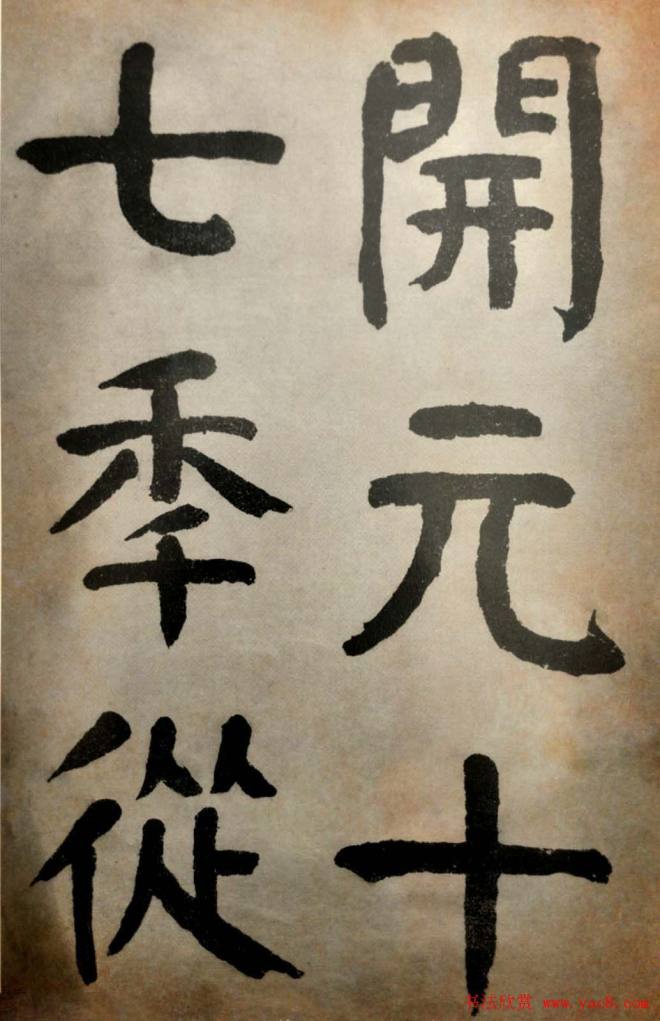 開元十
七秊從
书法欣赏 www.yac8.com